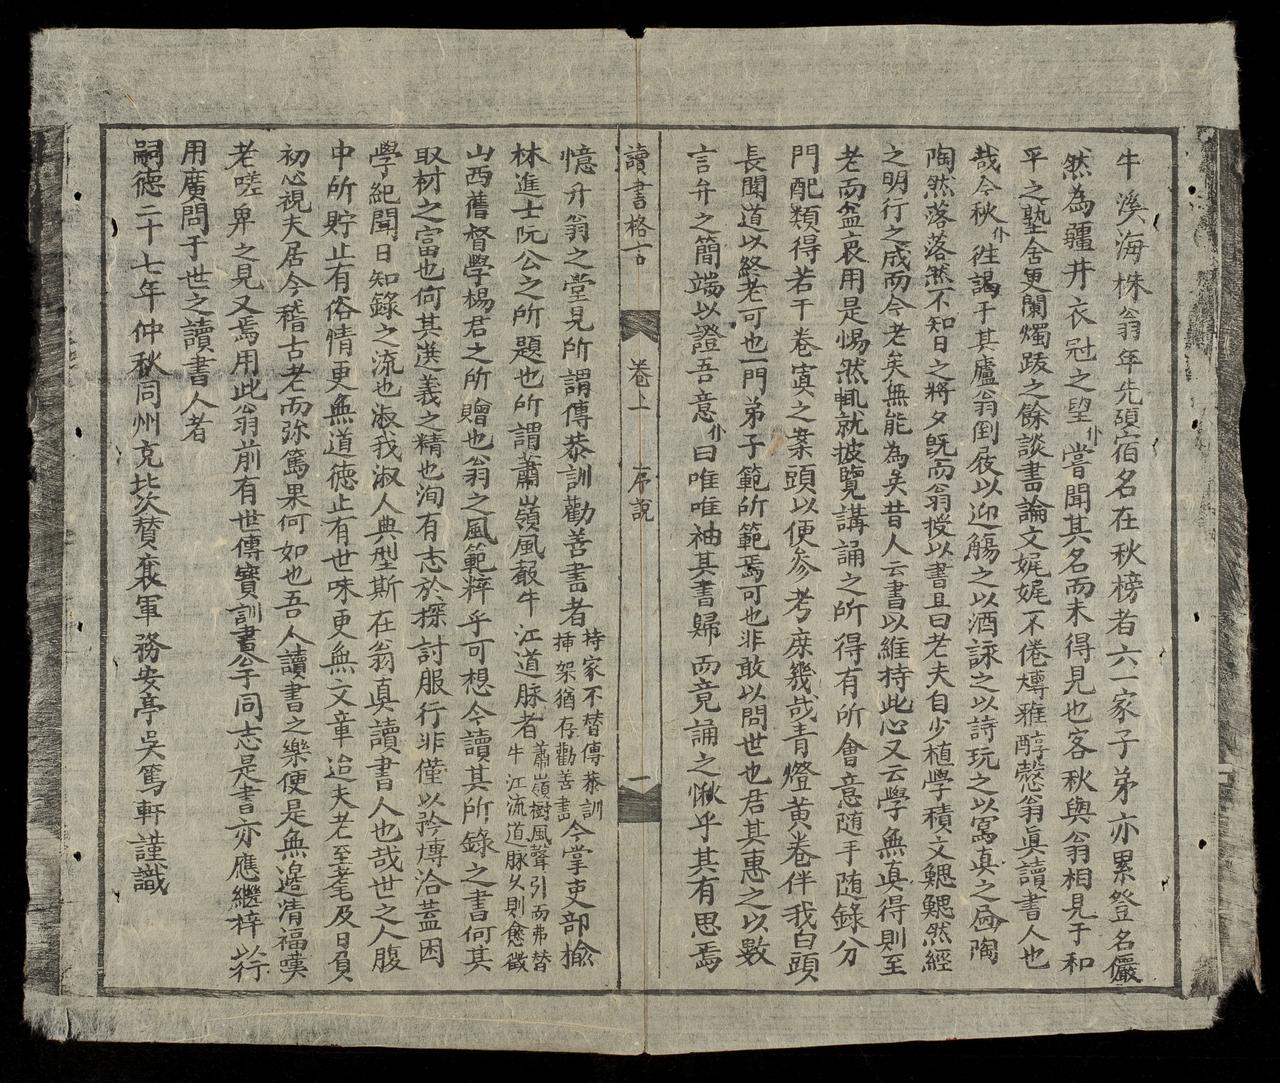 牛溪海株翁年先碩宿名在秋榜者六一家子弟亦累登名儼
然為疆井衣冠之望仆嘗聞其名而未得見也客秋與翁相見于和
平之塾舍更闌燭跋之餘談書論文娓娓不倦慱雅醇慤翁眞讀書人也
哉今秋仆徃謁于其廬翁倒屐以迎觴之以酒詠之以詩玩之以寫真之畫陶
陶然落落然不知日之將夕旣而翁授以書且曰老夫自少植學積文鰓鰓然經
之明行之成而今老矣無能為矣昔人云書以維持此心又云學無真得則至
老而益衰用是惕然輒就披覽講誦之所得有所會意随手随錄分
門配類得若干卷寘之案頭以便参考庶幾哉青燈黄卷伴我白頭
長聞道以終老可也一門弟子範所範焉可也非敢以問世也君其惠之以數
言弁之簡端以證吾意仆曰唯唯袖其書歸而竟誦之愀乎其有思焉
讀書格言 卷上 序說 一
憶升翁之堂見所謂傳恭訓勸善書者持家不替傳恭訓
挿架猶存勸善書今掌吏部榆
林進士阮公之所題也所謂蕭嶺風聲牛江道脉者蕭嶺樹風聲引而弗替
牛江流道脉久則愈徵
山西舊督學楊君之所贈也翁之風範粹乎可想今讀其所錄之書何其
取材之富也何其選義之精也洵有志於探討服行非僅以矜慱洽蓋困
學紀聞日知錄之流也淑我淑人典型斯在翁真讀書人也哉世之人腹
中所貯止有俗情更無道徳止有世味更無文章迨夫老至耄及日負
初心視夫居今稽古老而弥篤果何如也吾人讀書之樂便是無邉清福嘆
老嗟卑之見又焉用此翁前有世傳寳訓書公于同志是書亦應繼梓以行
用廣問于世之讀書人者
嗣徳二十七年仲秋同州克北次賛襄軍務安亭吳篤軒謹識